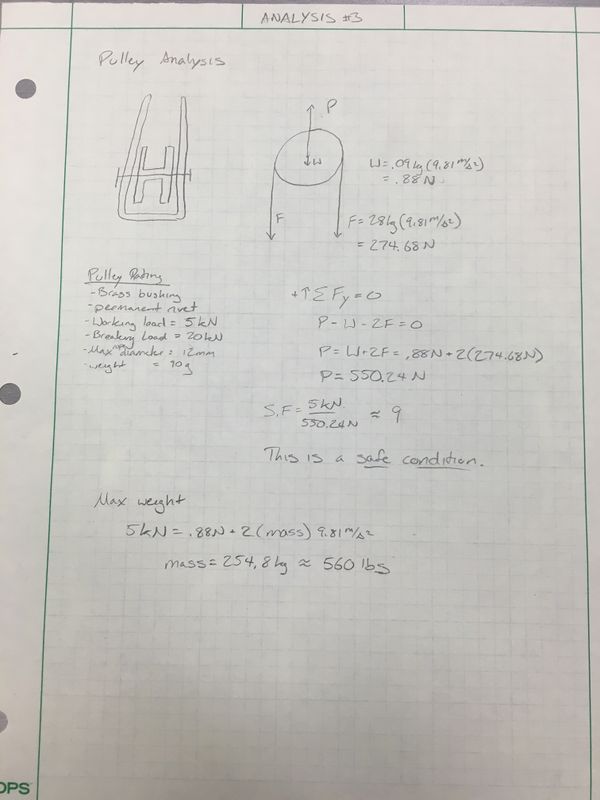 ANALYSIS #3
Pulley Analysis
P
W
F
W= .09kg (9.81 m/s²)
= .88N
F= 28kg (9.81 m/s²)
= 274.68N
Pulley Rating
- Brass bushing
- permanent rivet
- Working load = 5kN
- Breaking Load = 20kN
- Max rope diameter = 12mm
- weight = 90g
+↑ΣFy = 0
P - W - 2F = 0
P = W + 2F = .88N + 2(274.68N)
P = 550.24N
S.F = 5kN / 550.24N ≈ 9
This is a safe condition.
Max weight
5kN = .88N + 2(mass) 9.81 m/s²
mass = 254.8kg ≈ 560 lbs
OPS